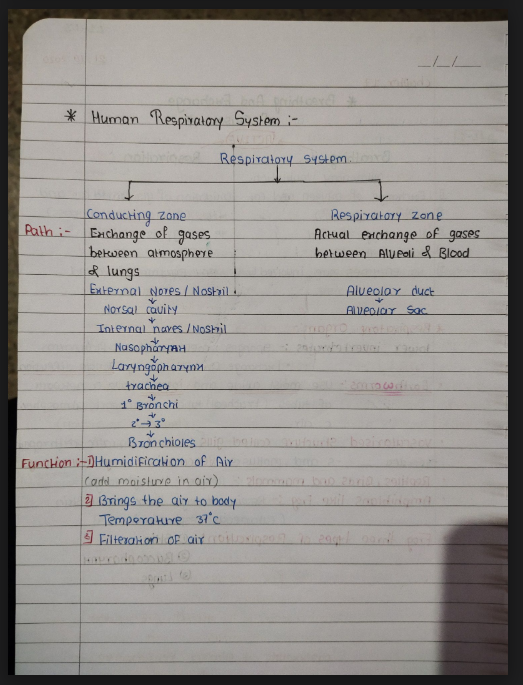 __/__/____
* Human Respiratory System :-
Respiratory system.
Conducting zone Respiratory zone
Path :- Exchange of gases Actual exchange of gases
between atmosphere between Alveoli & Blood
& lungs
External Nores / Nostril Alveolar duct
Norsal cavity Alveolar Sac
Internal nares / Nostril
Nasopharynx
Laryngopharynx
trachea
1° Bronchi
2° → 3°
Bronchioles
Function :- 1) Humidification of Air
(add moisture in air)
2) Brings the air to body
Temperature 37°c
3) Filteration of air